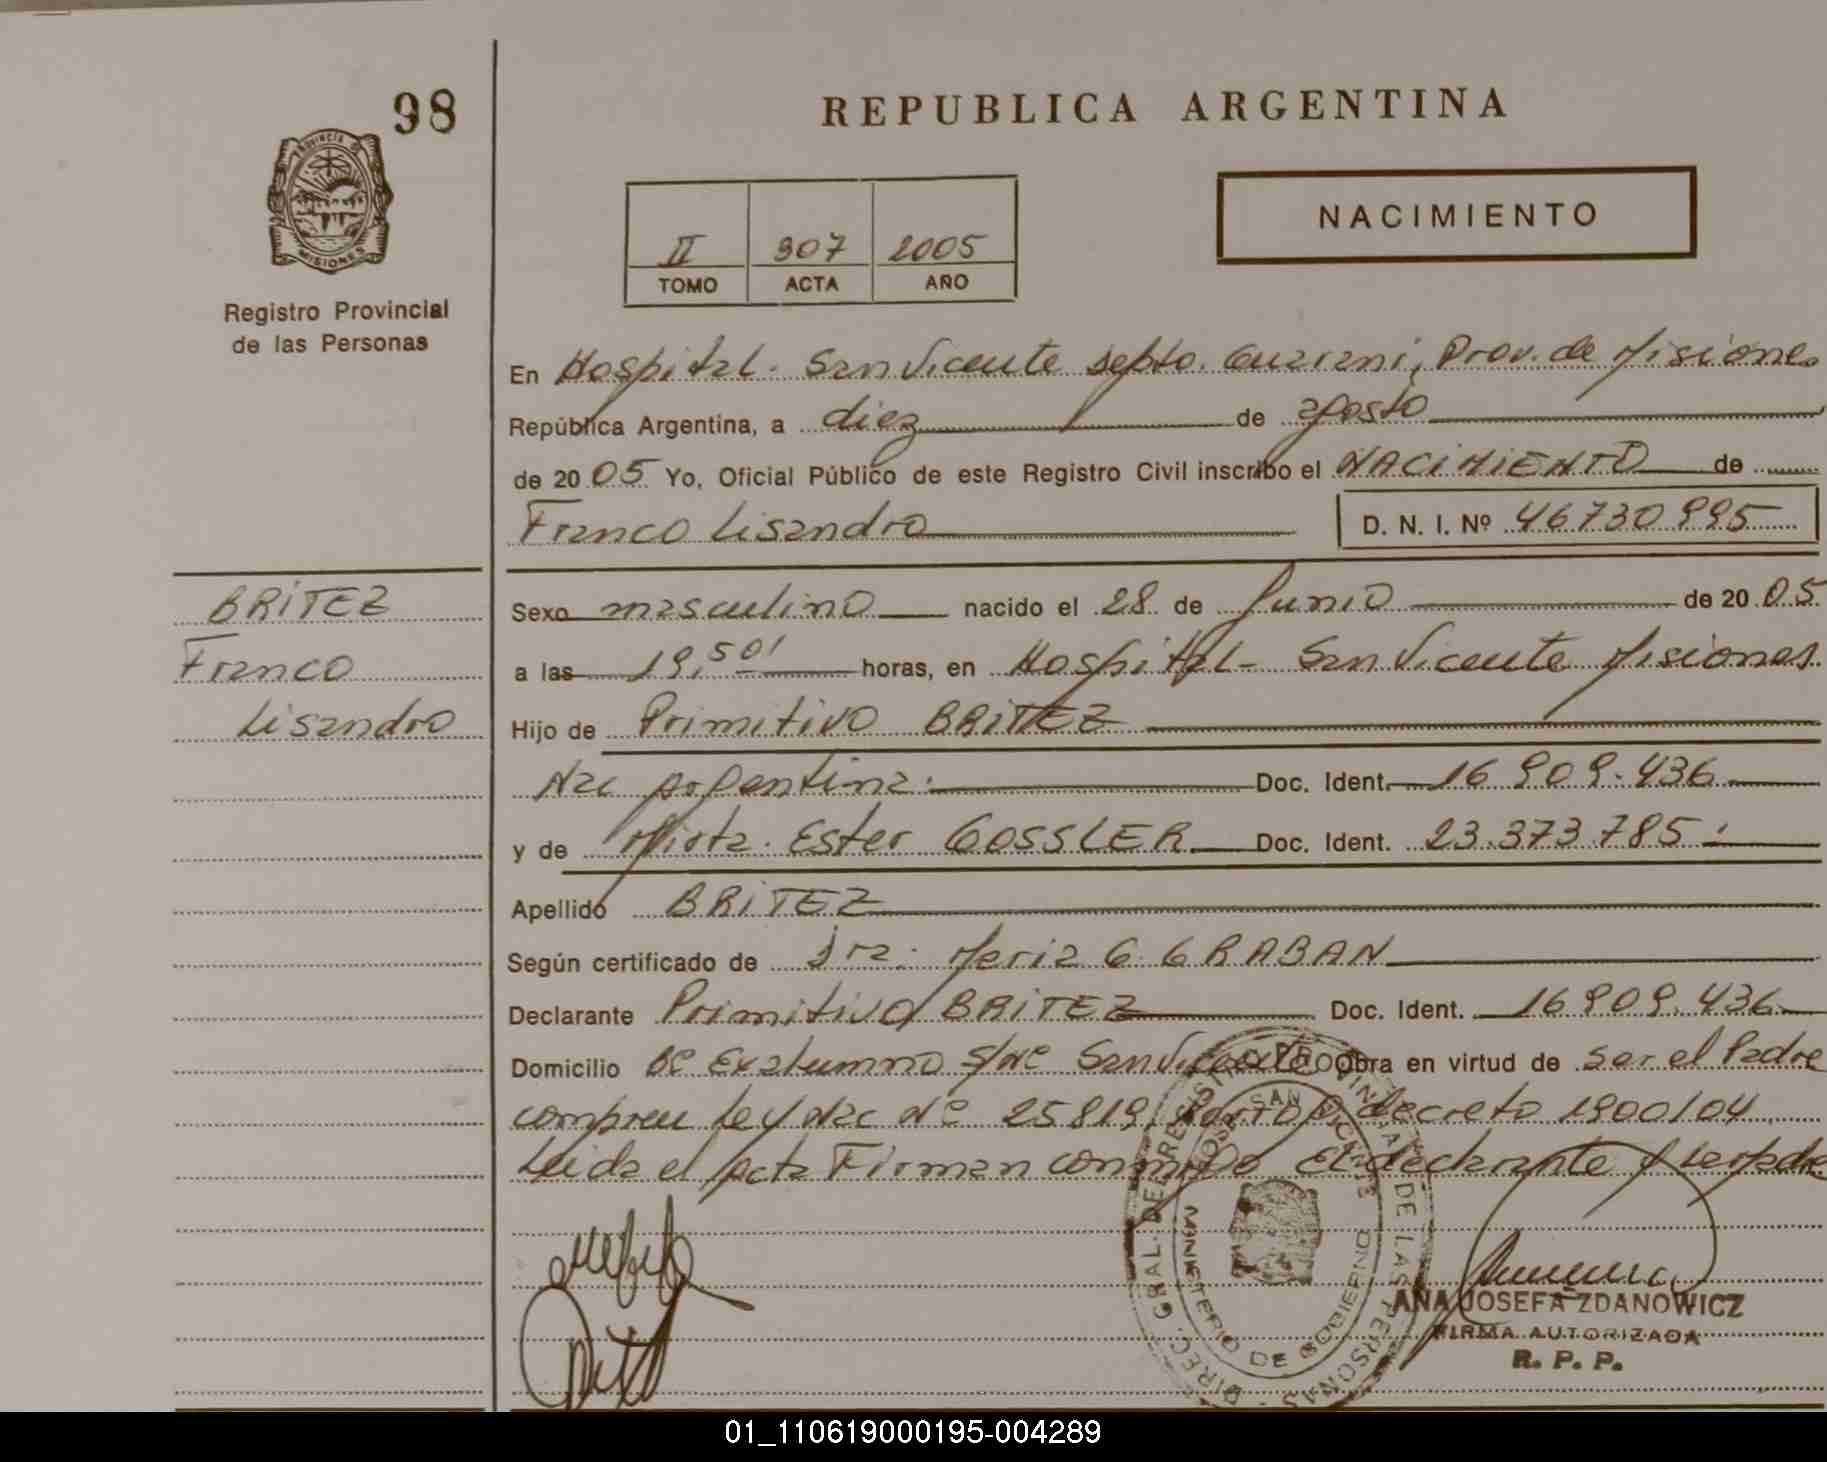 98
PROVINCIA DE
MISIONES
Registro Provincial
de las Personas
REPUBLICA ARGENTINA
II 307 2005
TOMO ACTA AÑO
NACIMIENTO
En Hospital. San Vicente Depto. Guarani, Prov. de Misiones
República Argentina, a diez de agosto
de 2005 Yo, Oficial Público de este Registro Civil inscribo el NACIMIENTO de
Franco Lisandro D. N. I. Nº 46730995
BRITEZ
Franco
Lisandro
Sexo masculino nacido el 28 de Junio de 2005
a las 19,50' horas, en Hospital - San Vicente Misiones
Hijo de Primitivo BRITEZ
Nac Argentina. Doc. Ident. 16.909.436
y de Mirta Ester GOSSLER Doc. Ident. 23.373.785
Apellido BRITEZ
Según certificado de Dra. Maria G. GRABAN
Declarante Primitivo BRITEZ Doc. Ident. 16.909.436
Domicilio Bº Exalumno S/Nº San Vicente Obra en virtud de ser el Padre
Ley Nac Nº 25819, decreto 1900/04
Leida el Acta Firman conmigo El declarante
DIREC. GRAL. DE REGISTRO PROVINCIAL DE LAS PERSONAS
HOSP. SAN VICENTE
MINISTERIO DE GOBIERNO
ANA JOSEFA ZDANOWICZ
FIRMA AUTORIZADA
R. P. P.
01_110619000195-004289